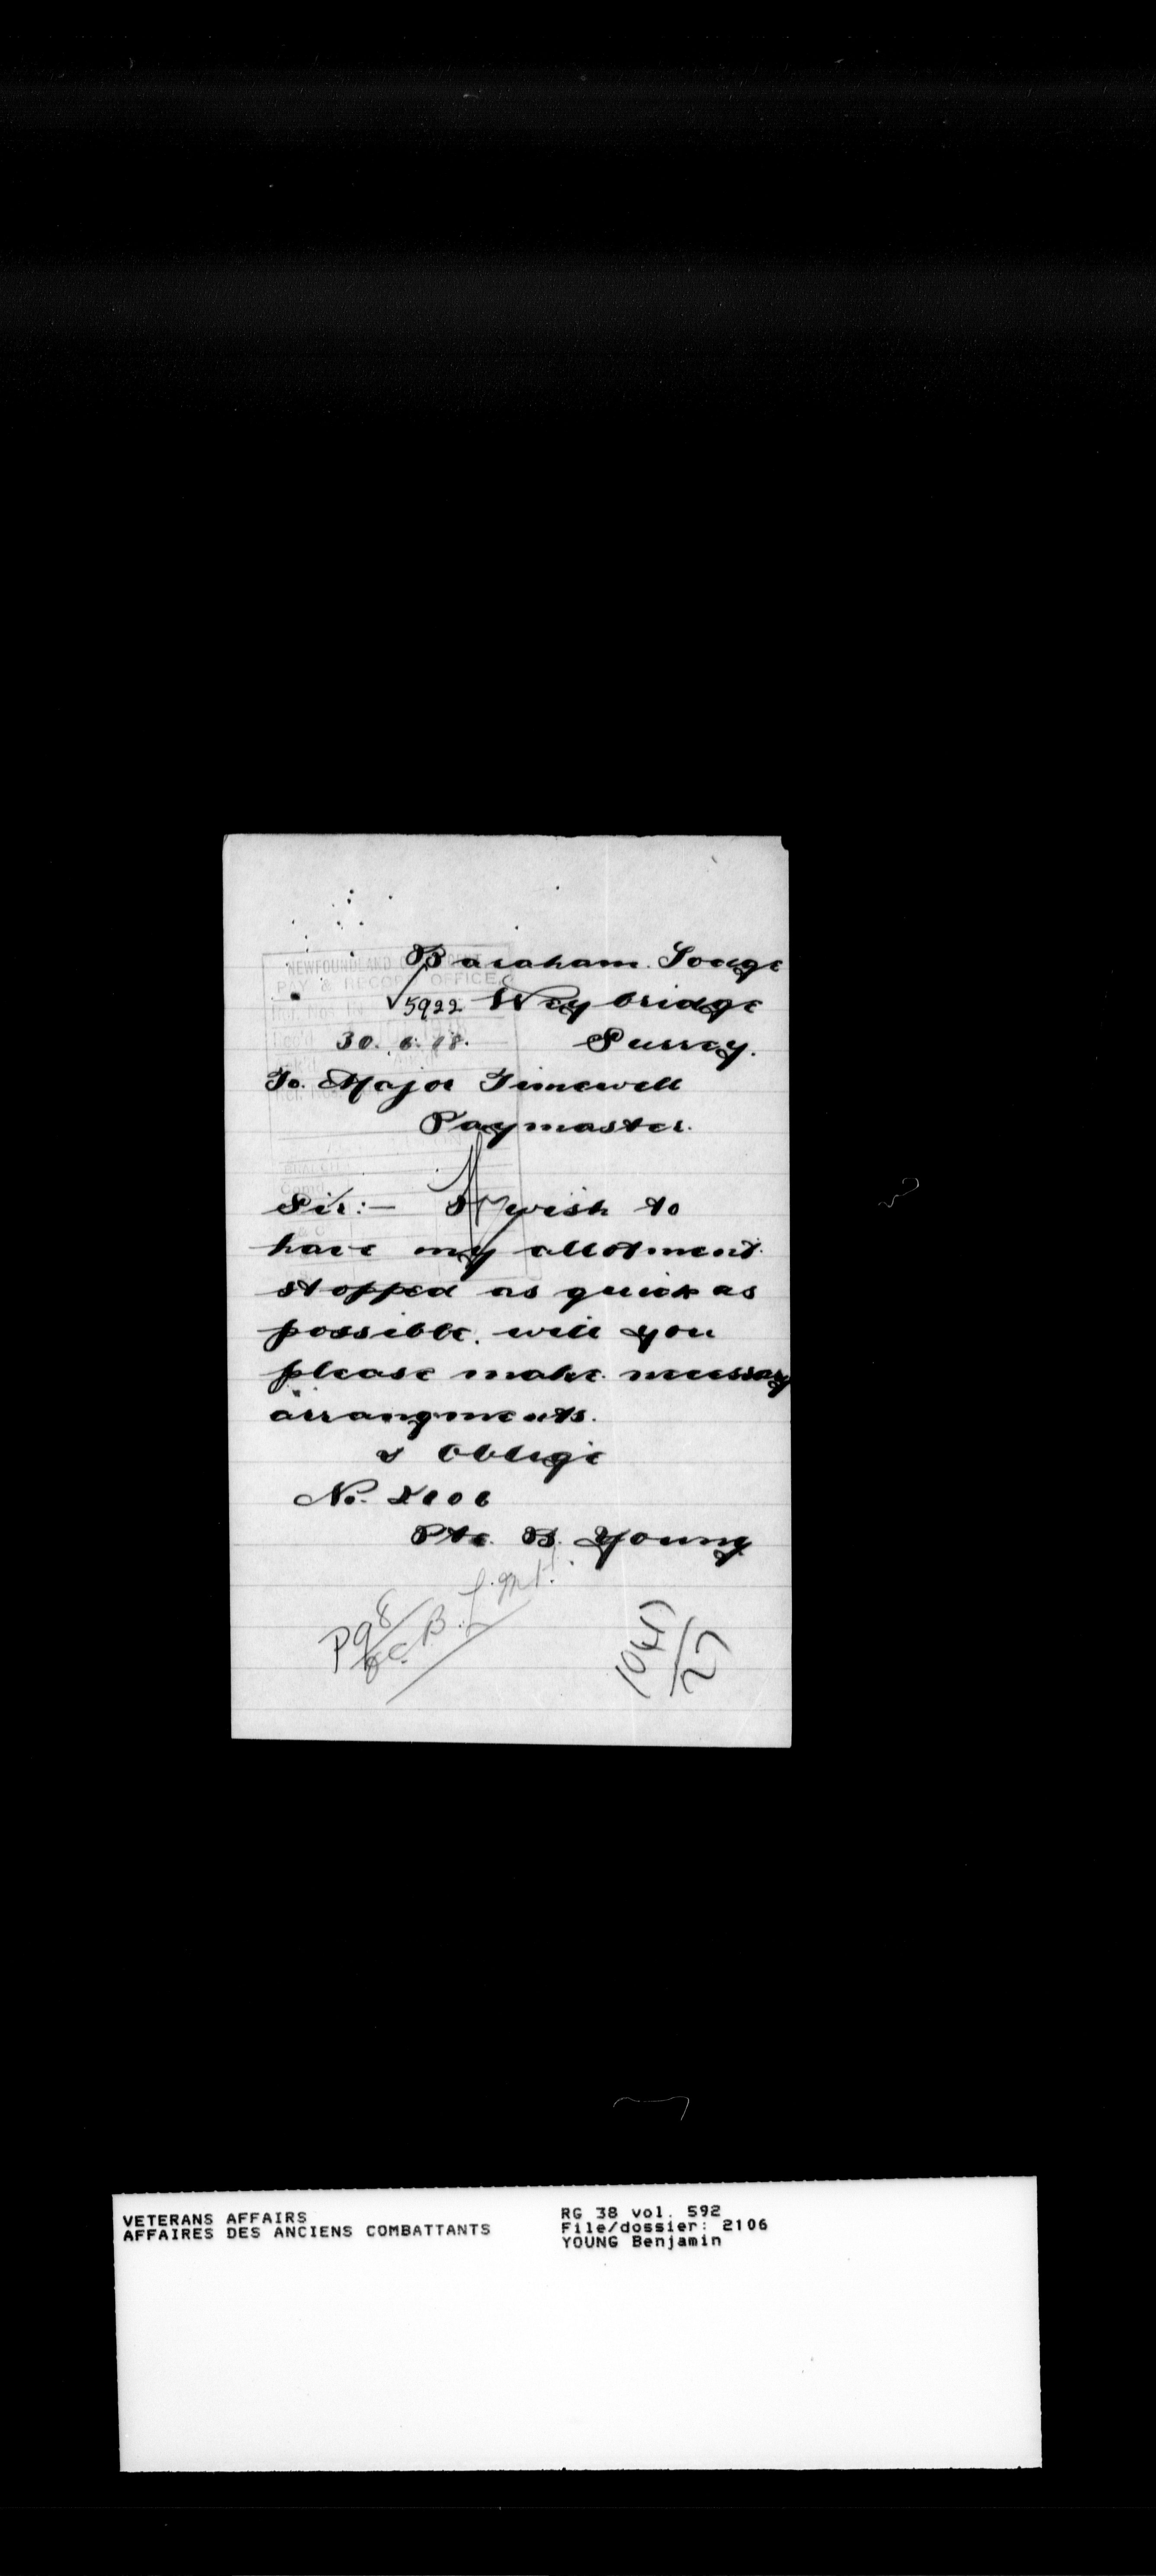 Baraham. Lodge
NEWFOUNDLAND CONTINGENT
PAY & RECORD OFFICE
5922 Weybridge
30. 6. 18. Surrey.
To. Major Timewell
Paymaster.
Sir:- I wish to
have my allotment.
stopped as quick as
possible. will you
please make necessary
arrangments.
& Oblige
No. 2106
Pte. B. Young
VETERANS AFFAIRS
AFFAIRES DES ANCIENS COMBATTANTS
RG 38 vol. 592
File/dossier: 2106
YOUNG Benjamin